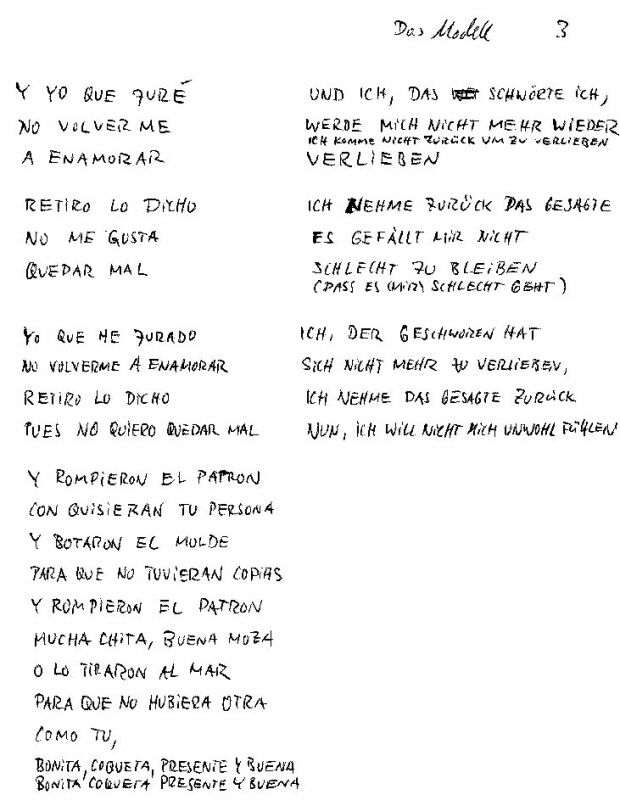 Das Modell 3
Y YO QUE JURÉ UND ICH, DAS SCHWÖRTE ICH,
NO VOLVER ME WERDE MICH NICHT MEHR WIEDER
ICH KOMME NICHT ZURÜCK UM ZU VERLIEBEN
A ENAMORAR VERLIEBEN
RETIRO LO DICHO ICH NEHME ZURÜCK DAS GESAGTE
NO ME GUSTA ES GEFÄLLT MIR NICHT
QUEDAR MAL SCHLECHT ZU BLEIBEN
(DASS ES (MIR) SCHLECHT GEHT)
YO QUE HE JURADO ICH, DER GESCHWOREN HAT
NO VOLVERME A ENAMORAR SICH NICHT MEHR ZU VERLIEBEN,
RETIRO LO DICHO ICH NEHME DAS GESAGTE ZURÜCK
PUES NO QUIERO QUEDAR MAL NUN, ICH WILL NICHT MICH UNWOHL FÜHLEN
Y ROMPIERON EL PATRON
CON QUISIERAN TU PERSONA
Y BOTARON EL MOLDE
PARA QUE NO TUVIERAN COPIAS
Y ROMPIERON EL PATRON
MUCHA CHITA, BUENA MOZA
O LO TIRARON AL MAR
PARA QUE NO HUBIERA OTRA
COMO TU,
BONITA, COQUETA, PRESENTE Y BUENA
BONITA COQUETA PRESENTE Y BUENA